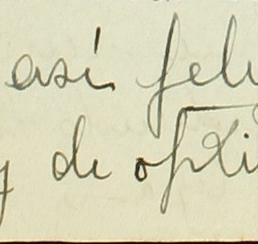 así feli
y de opti